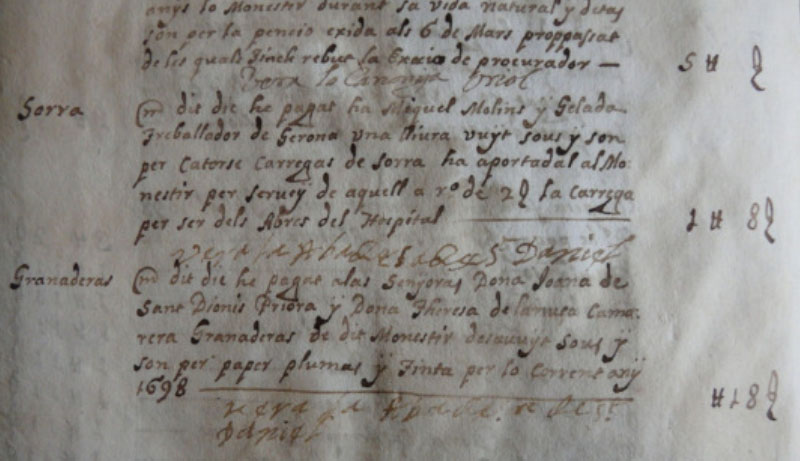 anys lo Monestir durant sa vida natural y ditas
son per la pencio exida als 6 de Mars proppassat
de les quals Tinch rebut la Exacio de procurador — 5 ₶ ȣ
Vera lo Canonge Oriol
Sorra
dit die he pagat ha Miquel Molins y Gelada
Treballador de Gerona una lliura vuyt sous y son
per Catorse Carregas de sorra ha aportadal al Mo:
nestir per servey de aquell a rº de 2 ȣ la Carrega
per ser dels Abres del Hospital — 1 ₶ 8 ȣ
Daniel
Granaderas
dit die he pagat a las Senyoras Dona Joana de
Sant Dionis Priora y Dona Theresa de lanusa Cama:
rera Granaderas de dit Monestir desvuyt Sous y
son per paper plumas y Tinta per lo Corrent any
1698 — ₶ 18 ȣ
Daniel